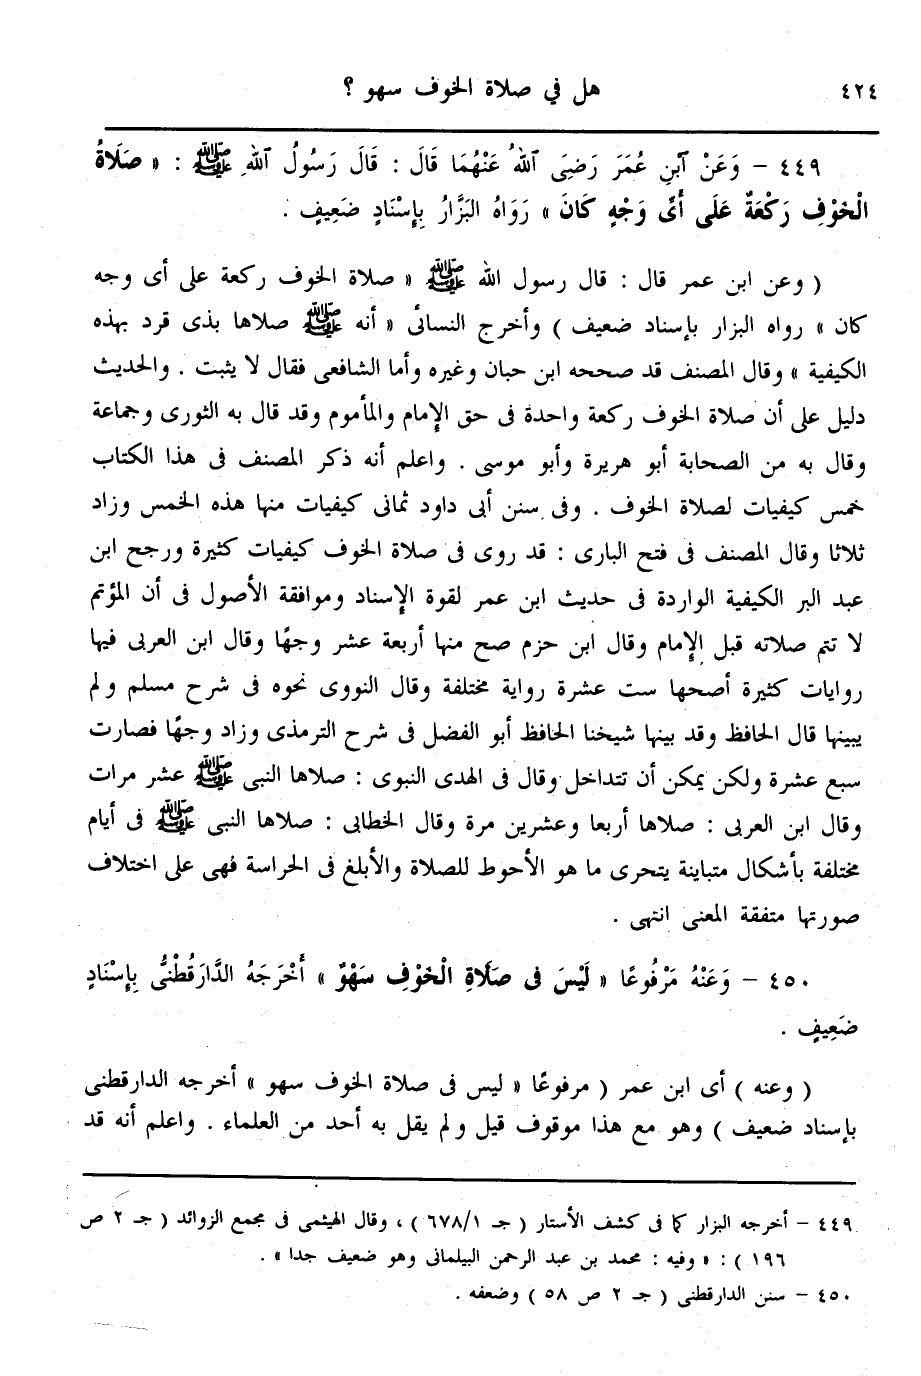 ٤٢٤ هل في صلاة الخوف سهو ؟
٤٤٩ – وَعَنْ ٱبْنِ عُمَرَ رَضِيَ ٱللهُ عَنْهُمَا قَالَ : قَالَ رَسُولُ ٱللهِ ﷺ : « صَلَاةُ
الْخَوْفِ رَكْعَةٌ عَلَى أَىِّ وَجْهٍ كَانَ » رَوَاهُ البَزَّارُ بِإِسْنَادٍ ضَعِيفٍ .
( وعن ابن عمر قال : قال رسول الله ﷺ « صلاة الخوف ركعة على أى وجه
كان » رواه البزار بإسناد ضعيف ) وأخرج النسائى « أنه ﷺ صلاها بذى قرد بهذه
الكيفية » وقال المصنف قد صححه ابن حبان وغيره وأما الشافعى فقال لا يثبت . والحديث
دليل على أن صلاة الخوف ركعة واحدة فى حق الإمام والمأموم وقد قال به الثورى وجماعة
وقال به من الصحابة أبو هريرة وأبو موسى . واعلم أنه ذكر المصنف فى هذا الكتاب
خمس كيفيات لصلاة الخوف . وفى سنن أبى داود ثمانى كيفيات منها هذه الخمس وزاد
ثلاثا وقال المصنف فى فتح البارى : قد روى فى صلاة الخوف كيفيات كثيرة ورجح ابن
عبد البر الكيفية الواردة فى حديث ابن عمر لقوة الإسناد وموافقة الأصول فى أن المؤتم
لا تتم صلاته قبل الإمام وقال ابن حزم صح منها أربعة عشر وجهًا وقال ابن العربى فيها
روايات كثيرة أصحها ست عشرة رواية مختلفة وقال النووى نحوه فى شرح مسلم ولم
يبينها قال الحافظ وقد بينها شيخنا الحافظ أبو الفضل فى شرح الترمذى وزاد وجهًا فصارت
سبع عشرة ولكن يمكن أن تتداخل وقال فى الهدى النبوى : صلاها النبى ﷺ عشر مرات
وقال ابن العربى : صلاها أربعا وعشرين مرة وقال الخطابى : صلاها النبى ﷺ فى أيام
مختلفة بأشكال متباينة يتحرى ما هو الأحوط للصلاة والأبلغ فى الحراسة فهى على اختلاف
صورتها متفقة المعنى انتهى .
٤٥٠ – وَعَنْهُ مَرْفُوعًا « لَيْسَ فى صَلَاةِ الْخَوْفِ سَهْوٌ » أَخْرَجَهُ الدَّارَقُطْنىُّ بِإِسْنَادٍ
ضَعِيفٍ .
( وعنه ) أى ابن عمر ( مرفوعًا « ليس فى صلاة الخوف سهو » أخرجه الدارقطنى
بإسناد ضعيف ) وهو مع هذا موقوف قيل ولم يقل به أحد من العلماء . واعلم أنه قد
٤٤٩ – أخرجه البزار كما فى كشف الأستار ( جـ ٦٧٨/١ ) ، وقال الهيثمى فى مجمع الزوائد ( جـ ٢ ص
١٩٦ ) : « وفيه : محمد بن عبد الرحمن البيلمانى وهو ضعيف جدا » .
٤٥٠ – سنن الدارقطنى ( جـ ٢ ص ٥٨ ) وضعفه .